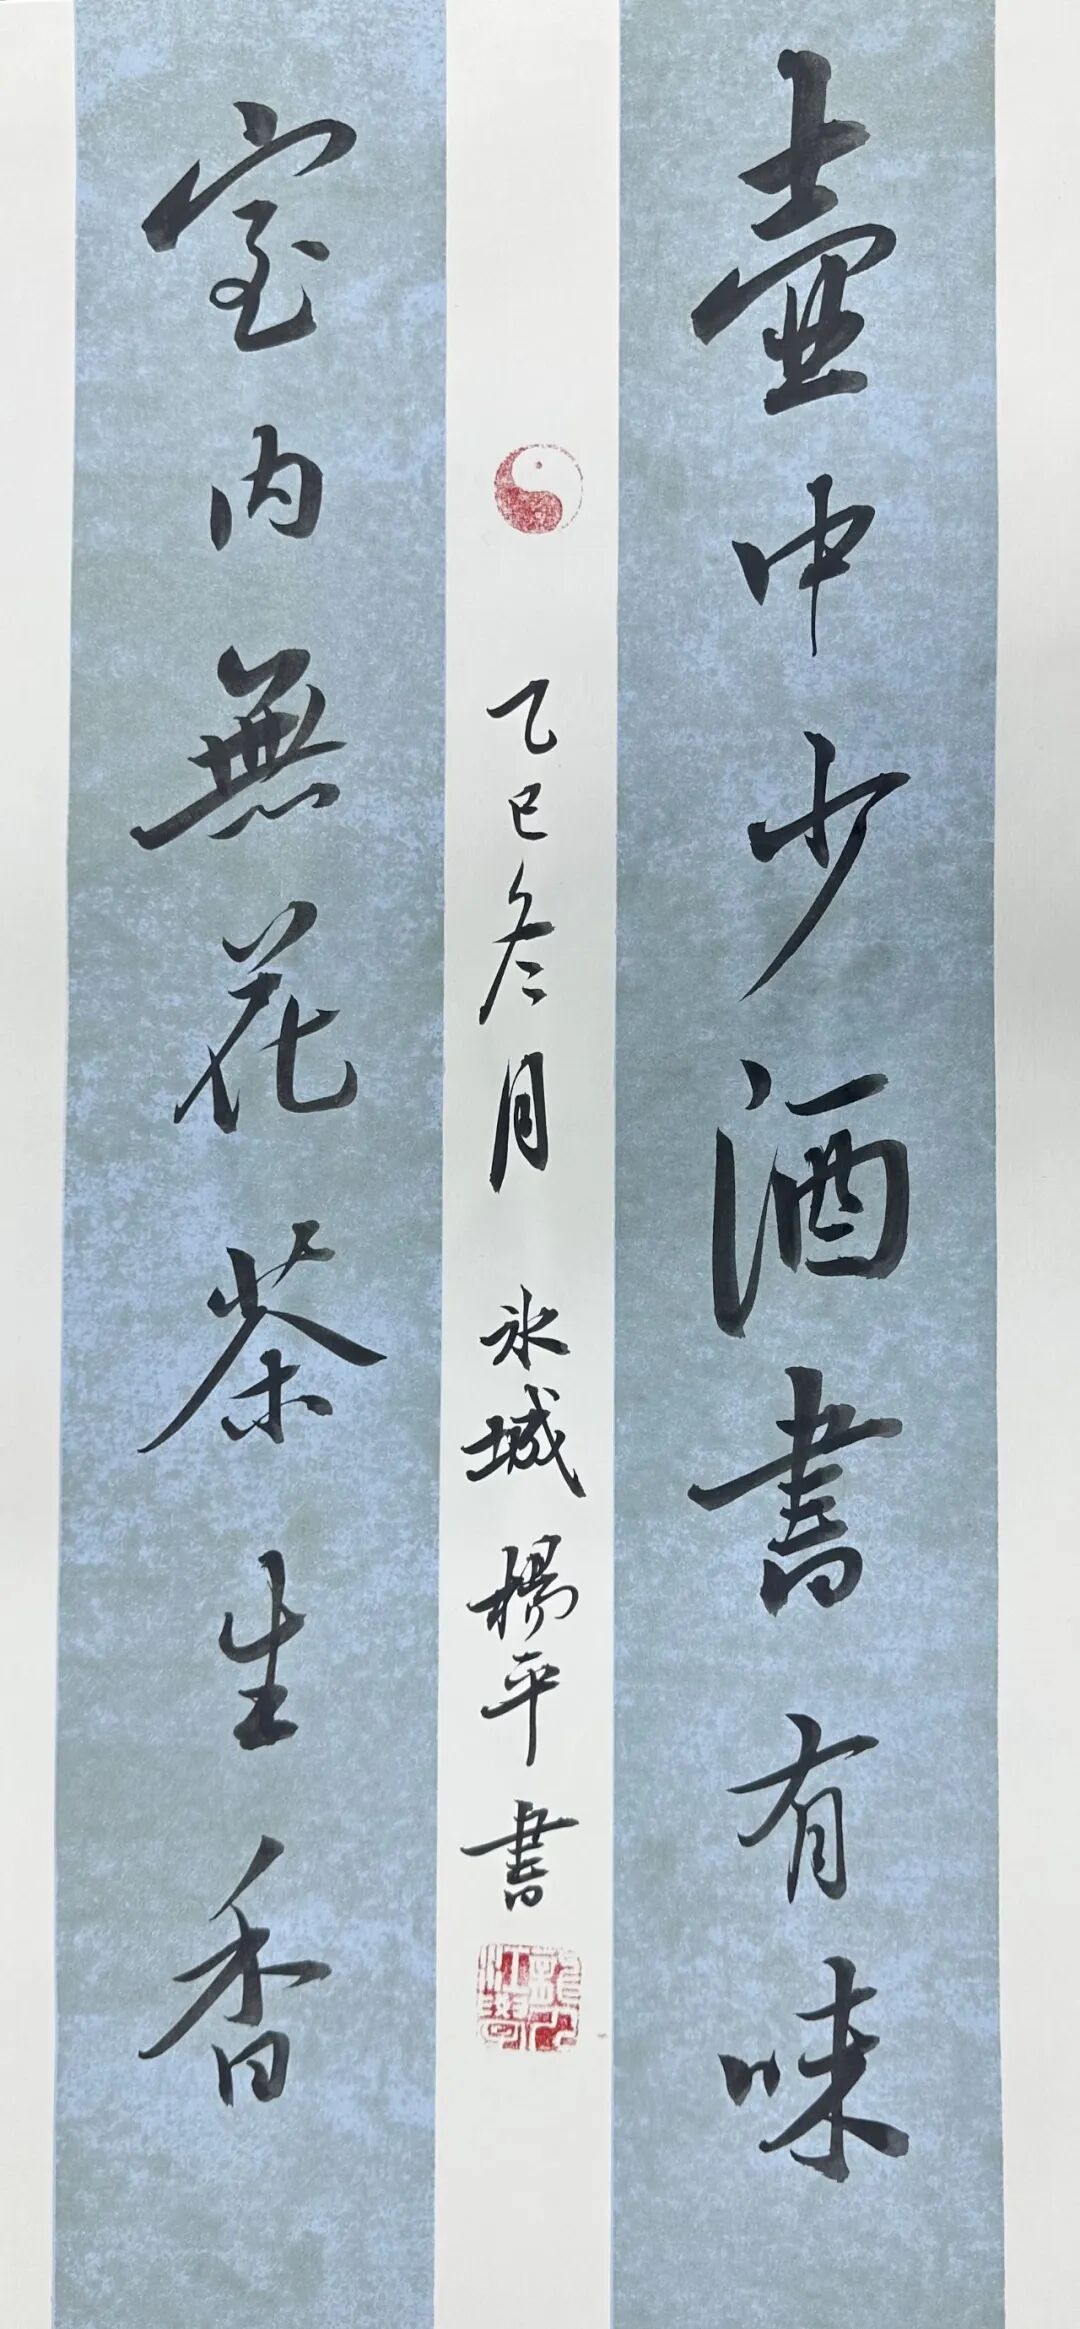 壺中少酒書有味
室内無花茶生香
乙巳冬月 冰城 楊平書